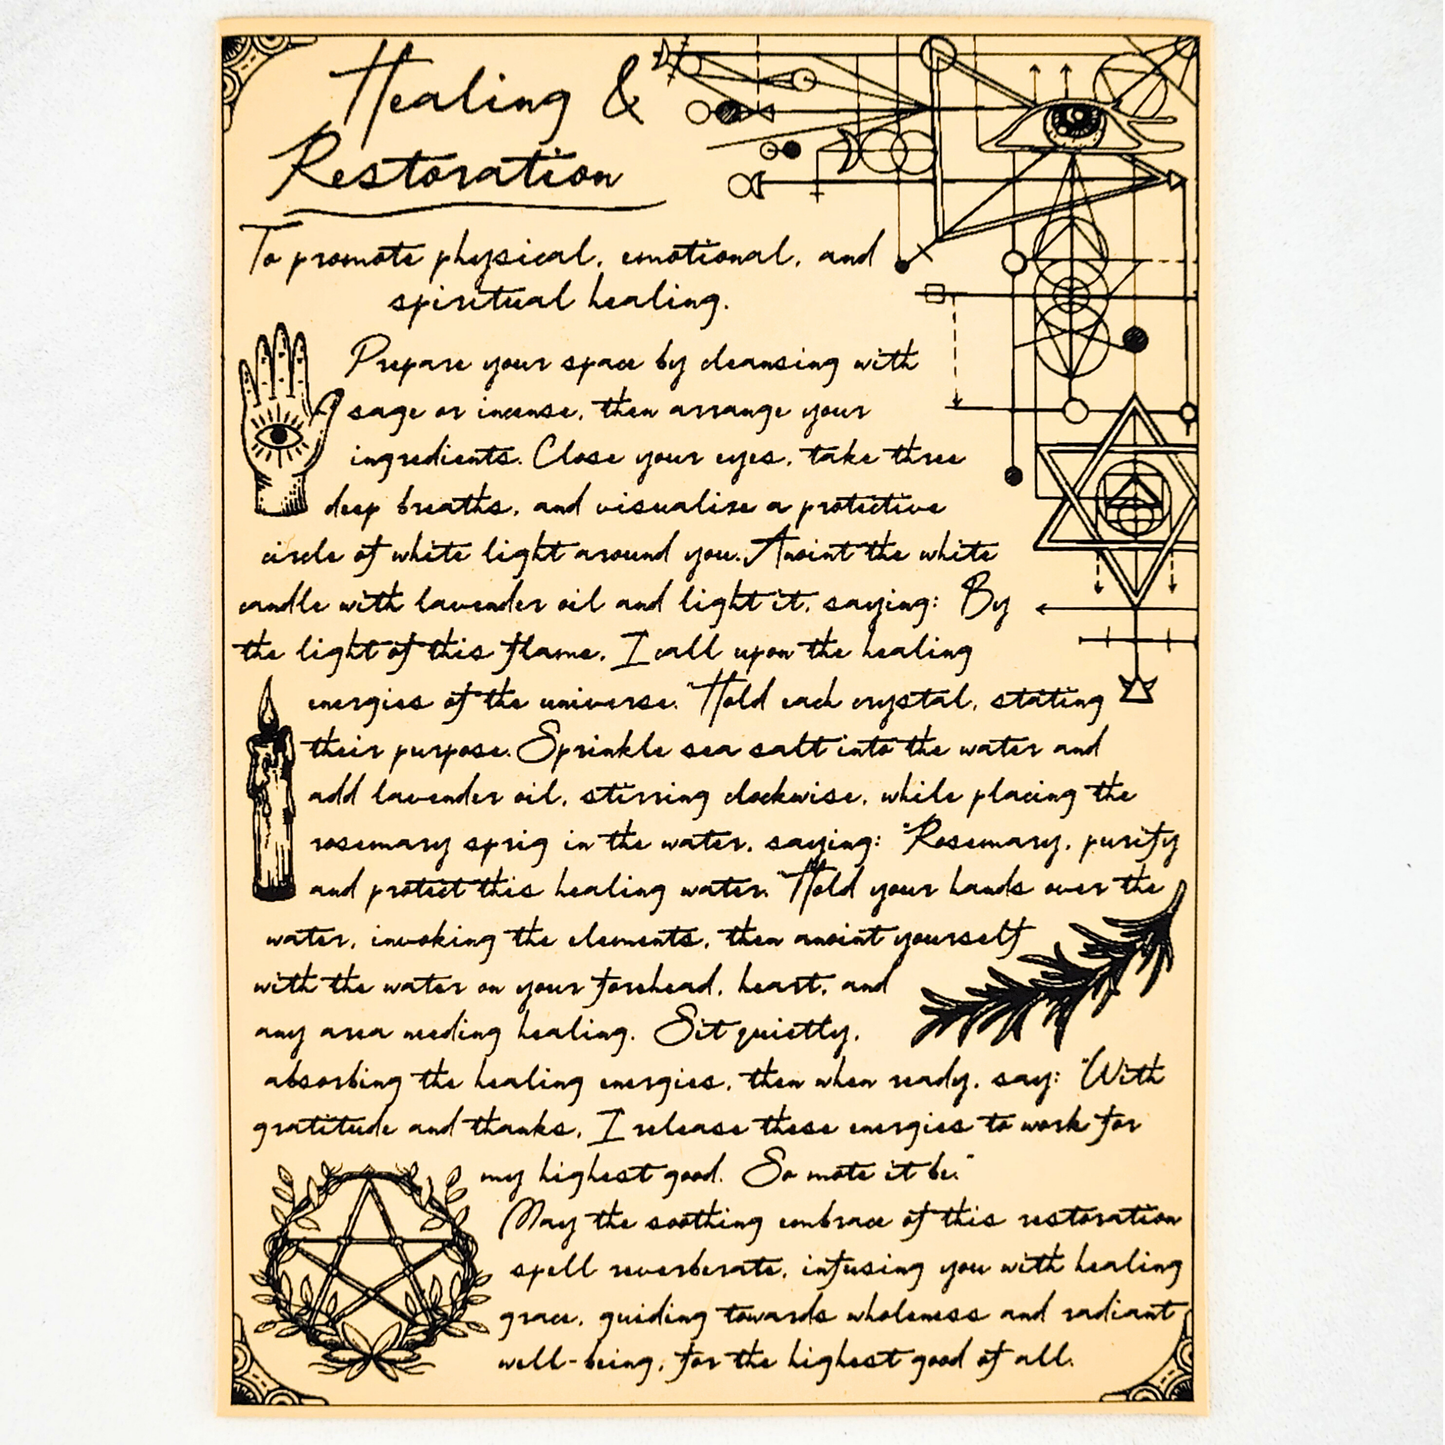 Healing &
Restoration
To promote physical, emotional, and
spiritual healing.
Prepare your space by cleansing with
sage or incense, then arrange your
ingredients. Close your eyes, take three
deep breaths, and visualize a protective
circle of white light around you. Anoint the white
candle with lavender oil and light it, saying: By
the light of this flame, I call upon the healing
energies of the universe." Hold each crystal, stating
their purpose. Sprinkle sea salt into the water and
add lavender oil, stirring clockwise, while placing the
rosemary sprig in the water, saying: "Rosemary, purify
and protect this healing water." Hold your hands over the
water, invoking the elements, then anoint yourself
with the water on your forehead, heart, and
any area needing healing. Sit quietly,
absorbing the healing energies, then when ready, say: "With
gratitude and thanks, I release these energies to work for
my highest good. So mote it be."
May the soothing embrace of this restoration
spell reverberate, infusing you with healing
grace, guiding towards wholeness and radiant
well-being, for the highest good of all.